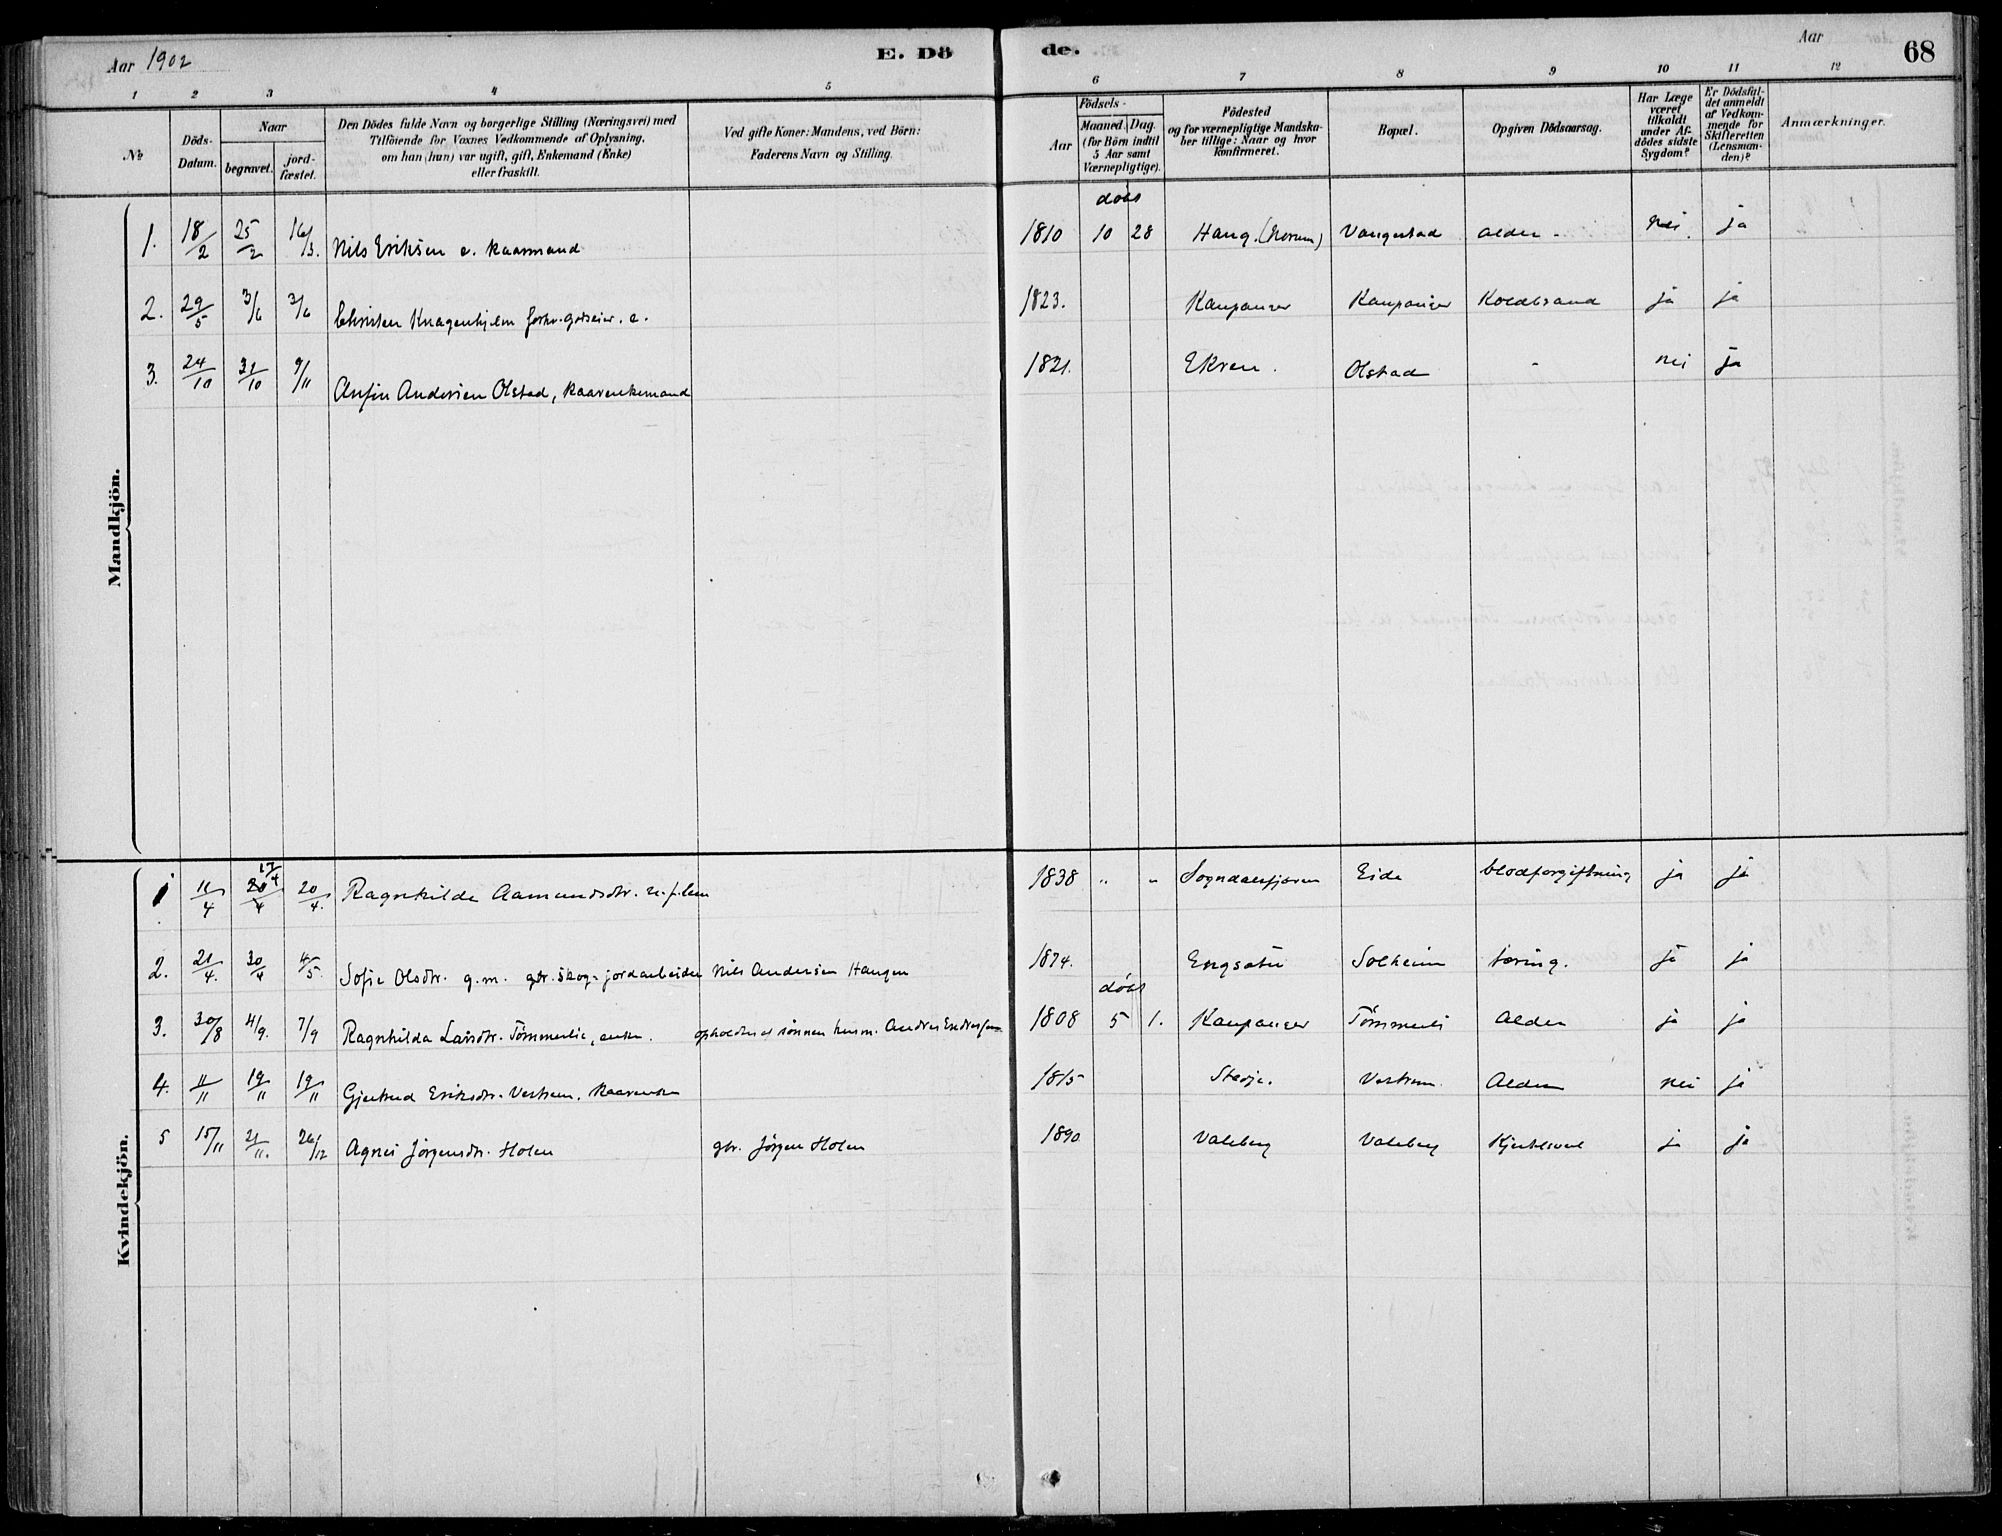 Aar 1902
E. Dö
de.
Aar
68
1 2 3 4 5 6 7 8 9 10 11 12
No
Döds-Datum.
Naar
begravet.
jord-fæstet.
Den Dödes fulde Navn og borgerlige Stilling (Næringsvei) med
Tilföiende for Voxnes Vedkommende af Oplysning,
om han (hun) var ugift, gift, Enkemand (Enke)
eller fraskilt.
Ved gifte Koner: Mandens, ved Börn:
Faderens Navn og Stilling.
Aar
Födsels-
Maaned. Dag.
(for Börn indtil
5 Aar samt
Værnepligtige).
Födested
og for værnepligtige Mandska-
ber tillige: Naar og hvor
konfirmeret.
Bopæl.
Opgiven Dödsaarsag.
Har Læge
været
tilkaldt
under Af-
dödes sidste
Sygdom?
Er Dödsfal-
det anmeldt
af Vedkom-
mende for
Skifteretten
(Lensman-
den)?
Anmærkninger.
Mandkjön.
døbt
1. 18/2 25/2 16/3. Nils Eriksen e. kaarmand 1810 10 28 Haug. (Norum) Vangestad alder - nei. ja
2. 29/5 3/6 3/6 Christen Knagenhjelm forhv. godseier. e. 1823. Kaupanger Kaupanger Koldbrand ja ja
3. 24/10 31/10 9/11 Anfin Andersen Olstad, kaarenkemand 1821. Ekren. Olstad - nei ja
Kvindekjön.
1 11/4 20/4 17/4 20/4. Ragnhilde Aamundsdtr. 1838 " " Sogndalsfjøren Eide blodforgiftning ja ja
2. 21/4. 30/4 4/5. Sofie Olsdtr. g.m. gbr. skog- jordarbeider Nils Andersen Haugen 1874. Engsæter Solheim tæring. ja ja
døbt
3. 30/8 4/9. 7/9 Ragnhilda Larsdtr. Tømmerlie, enke. opholdtes af sønnen husm. Andres Endresen 1808 5 1. Kaupanger Tømmerli Alder ja ja
4. 11/11 19/11 19/11 Gjertrud Eriksdtr. Vestrem. kaarenke 1815 Stedje. Vestrem. Alder nei ja
5 15/11 21/11. 26/12 Agnes Jørgensdtr. Holen gbr. Jørgen Holen 1890 Valeberg Valeberg Kjertelsvul ja ja